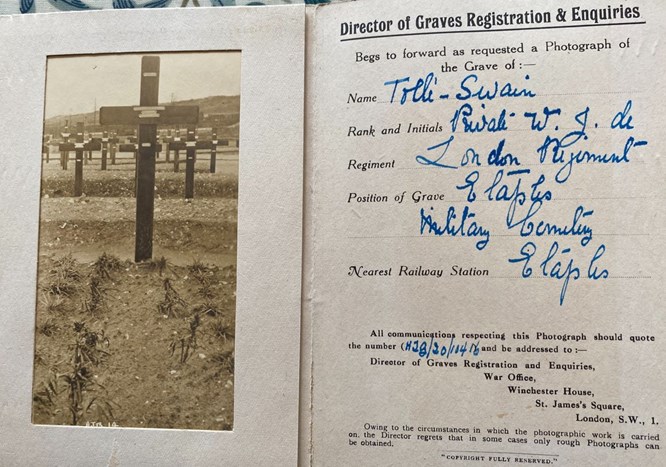 Director of Graves Registration & Enquiries
Begs to forward as requested a Photograph of
the Grave of :—
Name Tollé-Swain
Rank and Initials Private W. J. de
Regiment London Regiment
Position of Grave Etaples
Military Cemetery
Nearest Railway Station Etaples
All communications respecting this Photograph should quote
the number and be addressed to :—
Director of Graves Registration and Enquiries,
War Office,
Winchester House,
St. James's Square,
London, S.W., 1.
Owing to the circumstances in which the photographic work is carried
on, the Director regrets that in some cases only rough Photographs can
be obtained.
"COPYRIGHT FULLY RESERVED."